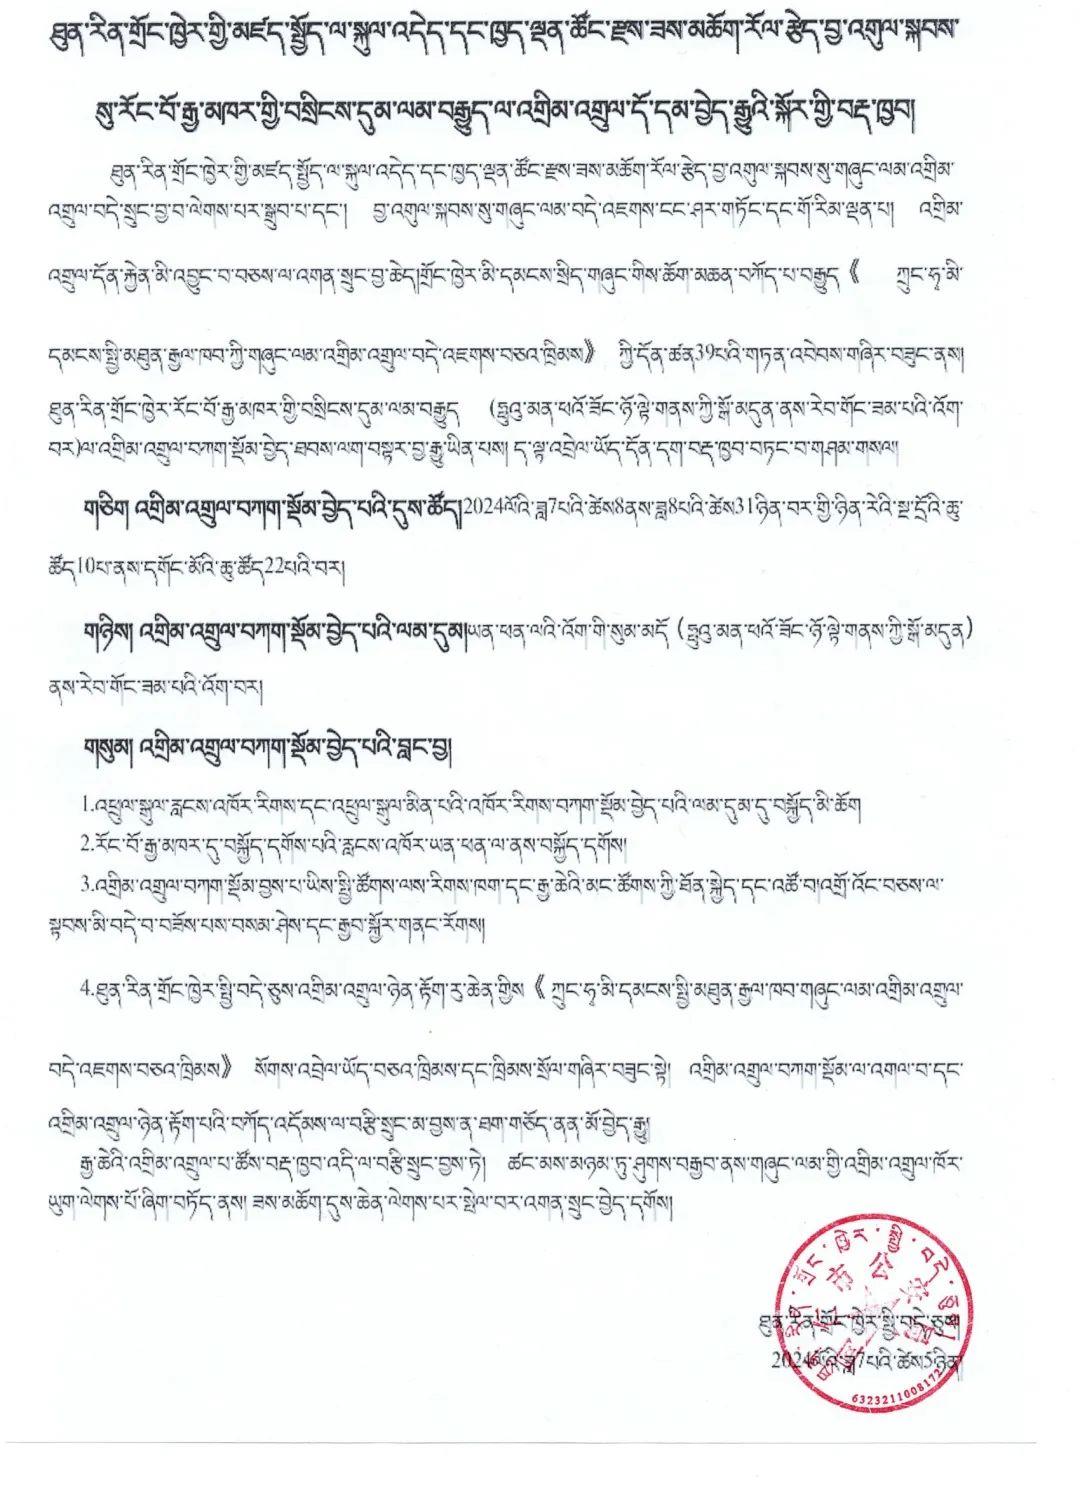 ཐུན་རིན་གྲོང་ཁྱེར་གྱི་མཛད་སྤྱོད་ལ་སྐུལ་འདེད་དང་ཁྱད་ལྡན་ཚོང་རྫས་ཟས་མཆོག་རོལ་རྩེད་བྱ་འགུལ་སྐབས་
སུ་རོང་བོ་རྒྱ་མཁར་གྱི་བསྲིངས་དུམ་ལམ་བརྒྱུད་ལ་འགྲིམ་འགྲུལ་དོ་དམ་བྱེད་རྒྱུའི་སྐོར་གྱི་བརྡ་ཁྱབ།
ཐུན་རིན་གྲོང་ཁྱེར་གྱི་མཛད་སྤྱོད་ལ་སྐུལ་འདེད་དང་ཁྱད་ལྡན་ཚོང་རྫས་ཟས་མཆོག་རོལ་རྩེད་བྱ་འགུལ་སྐབས་སུ་གཞུང་ལམ་འགྲིམ་
འགྲུལ་བདེ་སྲུང་བྱ་བ་ལེགས་པར་སྒྲུབ་པ་དང་། བྱ་འགུལ་སྐབས་སུ་གཞུང་ལམ་བདེ་འཇགས་ངང་ཤར་གཏོང་དང་གོ་རིམ་ལྡན་པ། འགྲིམ་
འགྲུལ་དོན་རྐྱེན་མི་འབྱུང་བ་བཅས་ལ་འགན་སྲུང་བྱ་ཆེད།གྲོང་ཁྱེར་མི་དམངས་སྲིད་གཞུང་གིས་ཆོག་མཆན་བཀོད་པ་བརྒྱུད《 ཀྲུང་ཧྭ་མི་
དམངས་སྤྱི་མཐུན་རྒྱལ་ཁབ་ཀྱི་གཞུང་ལམ་འགྲིམ་འགྲུལ་བདེ་འཇགས་བཅའ་ཁྲིམས》 ཀྱི་དོན་ཚན39པའི་གཏན་འབེབས་གཞིར་བཟུང་ནས།
ཐུན་རིན་གྲོང་ཁྱེར་རོང་བོ་རྒྱ་མཁར་གྱི་བསྲིངས་དུམ་ལམ་བརྒྱུད (ཧྥུའུ་མན་ཕའོ་ཟོང་ཉོ་ལྟེ་གནས་ཀྱི་སྒོ་མདུན་ནས་རེབ་གོང་ཟམ་པའི་འོག་
བར)ལ་འགྲིམ་འགྲུལ་བཀག་སྡོམ་བྱེད་ཐབས་ལག་བསྟར་བྱ་རྒྱུ་ཡིན་པས། ད་ལྟ་འབྲེལ་ཡོད་དོན་དག་བརྡ་ཁྱབ་བཏང་བ་གཤམ་གསལ།
གཅིག འགྲིམ་འགྲུལ་བཀག་སྡོམ་བྱེད་པའི་དུས་ཚོད།2024ལོའི་ཟླ7པའི་ཚེས8ནས་ཟླ8པའི་ཚེས31ཉིན་བར་གྱི་ཉིན་རེའི་སྔ་དྲོའི་ཆུ་
ཚོད10པ་ནས་དགོང་མོའི་ཆུ་ཚོད22པའི་བར།
གཉིས། འགྲིམ་འགྲུལ་བཀག་སྡོམ་བྱེད་པའི་ལམ་དུམ།ཡན་ཕན་ལའི་འོག་གི་སུམ་མདོ (ཧྥུའུ་མན་ཕའོ་ཟོང་ཉོ་ལྟེ་གནས་ཀྱི་སྒོ་མདུན)
ནས་རེབ་གོང་ཟམ་པའི་འོག་བར།
གསུམ། འགྲིམ་འགྲུལ་བཀག་སྡོམ་བྱེད་པའི་བླང་བྱ།
1.འཕྲུལ་སྒྲུལ་རླངས་འཁོར་རིགས་དང་འཕྲུལ་སྒྲུལ་མིན་པའི་འཁོར་རིགས་བཀག་སྡོམ་བྱེད་པའི་ལམ་དུམ་དུ་བསྐྱོད་མི་ཆོག
2.རོང་བོ་རྒྱ་མཁར་དུ་བསྐྱོད་དགོས་པའི་རླངས་འཁོར་ཡན་ཕན་ལ་ནས་བསྐྱོད་དགོས།
3.འགྲིམ་འགྲུལ་བཀག་སྡོམ་བྱས་པ་ཡིས་སྤྱི་ཚོགས་ལས་རིགས་ཁག་དང་རྒྱ་ཆེའི་མང་ཚོགས་ཀྱི་ཐོན་སྐྱེད་དང་འཚོ་བ།འགྲོ་འོང་བཅས་ལ་
སྟབས་མི་བདེ་བ་བཟོས་པས་བསམ་ཤེས་དང་རྒྱབ་སྐྱོར་གནང་རོགས།
4.ཐུན་རིན་གྲོང་ཁྱེར་སྤྱི་བདེ་ཅུས་འགྲིམ་འགྲུལ་ཉེན་རྟོག་རུ་ཆེན་གྱིས《 ཀྲུང་ཧྭ་མི་དམངས་སྤྱི་མཐུན་རྒྱལ་ཁབ་གཞུང་ལམ་འགྲིམ་འགྲུལ་
བདེ་འཇགས་བཅའ་ཁྲིམས》 སོགས་འབྲེལ་ཡོད་བཅའ་ཁྲིམས་དང་ཁྲིམས་སྲོལ་གཞིར་བཟུང་སྟེ། འགྲིམ་འགྲུལ་བཀག་སྡོམ་ལ་འགལ་བ་དང་
འགྲིམ་འགྲུལ་ཉེན་རྟོག་པའི་བཀོད་འདོམས་ལ་བརྩི་སྲུང་མ་བྱས་ན་ཐག་གཅོད་ནན་མོ་བྱེད་རྒྱུ།
རྒྱ་ཆེའི་འགྲིམ་འགྲུལ་པ་ཚོས་བརྡ་ཁྱབ་འདི་ལ་བརྩི་སྲུང་བྱས་ཏེ། ཚང་མས་མཉམ་ཏུ་ཤུགས་བརྒྱབ་ནས་གཞུང་ལམ་གྱི་འགྲིམ་འགྲུལ་ཁོར་
ཡུག་ལེགས་པོ་ཞིག་བཏོད་ནས། ཟས་མཆོག་དུས་ཆེན་ལེགས་པར་སྤེལ་བར་འགན་སྲུང་བྱེད་དགོས།
ཐུན་རིན་གྲོང་ཁྱེར་སྤྱི་བདེ་ཅུས།
2024ལོའི་ཟླ7པའི་ཚེས5ཉིན།
6323211008172